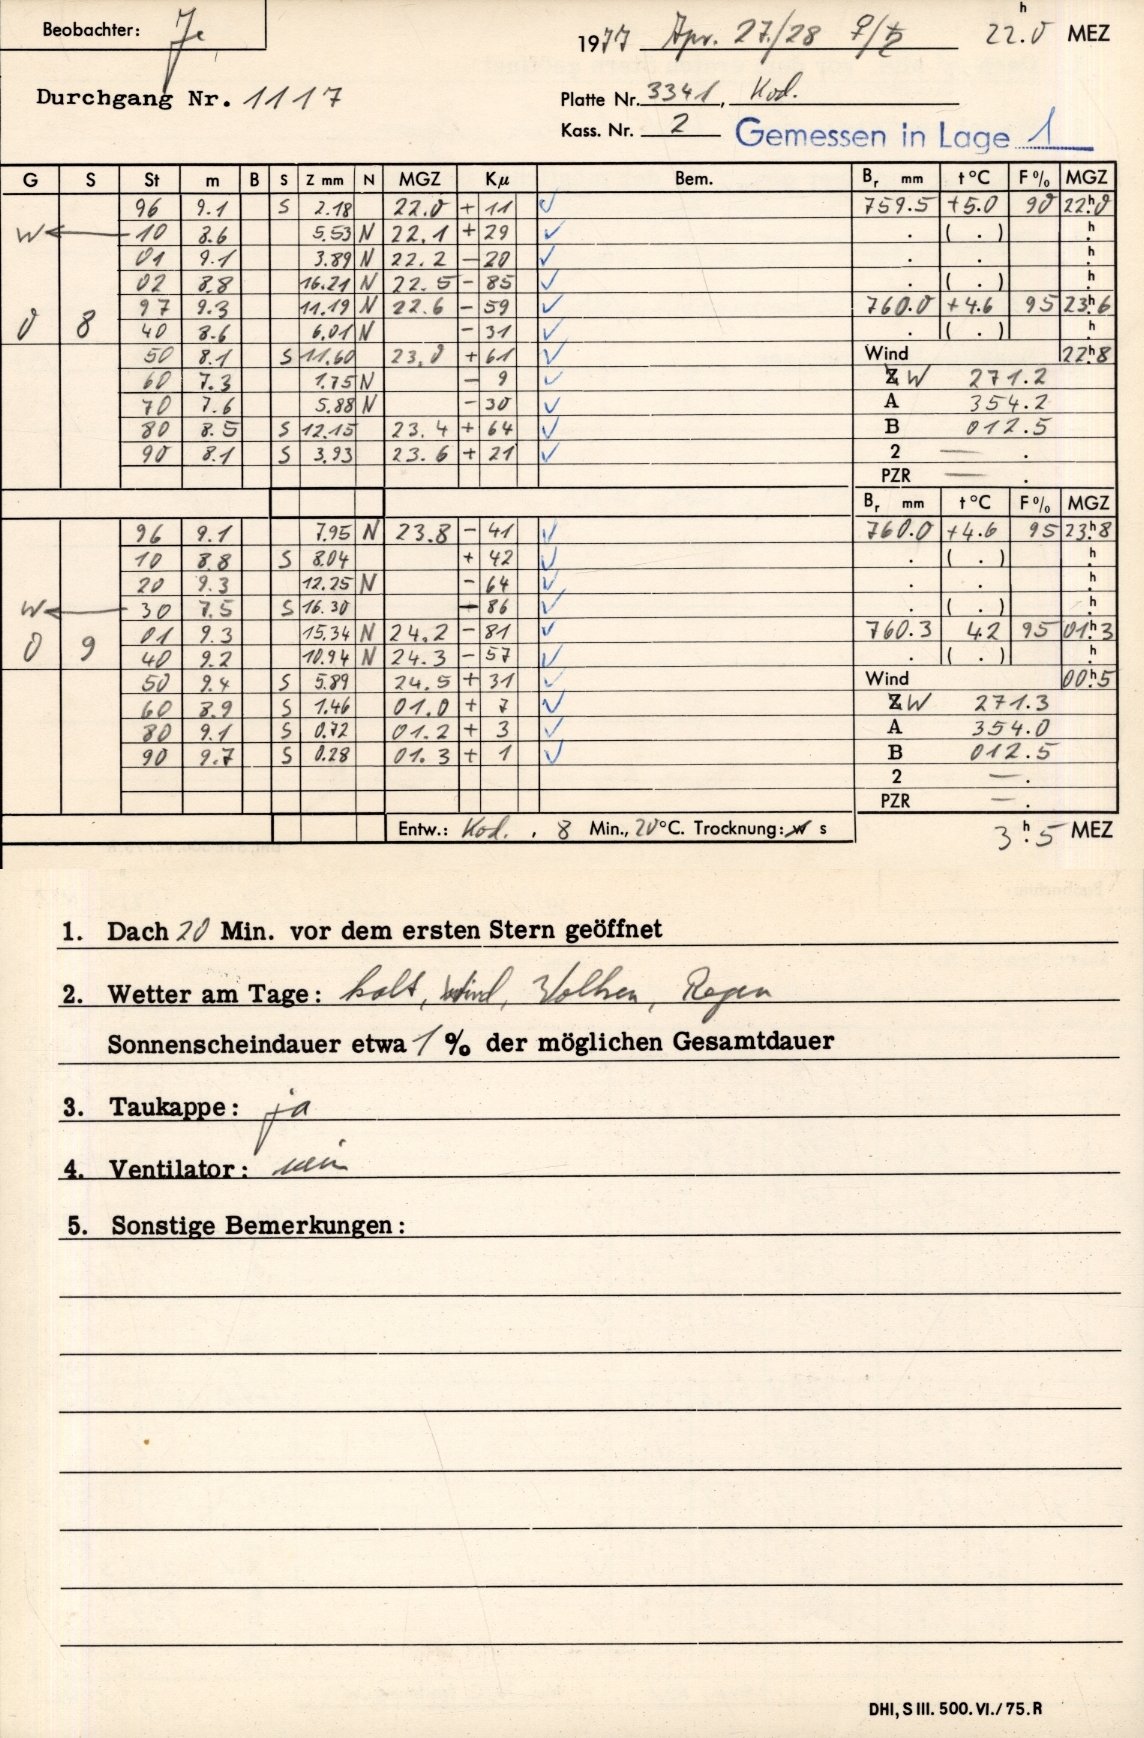 Beobachter: Je
1977 Apr. 27./28 ♀/♄ 22.0 h MEZ
Durchgang Nr. 1117
Platte Nr. 3341, Kod.
Kass. Nr. 2 Gemessen in Lage 1
G S St m B S Z mm N MGZ Kμ Bem. Br mm t °C F % MGZ
96 9.1 S 2.18 22.0 + 11 ✓ 759.5 +5.0 90 22h.0
W ← 10 8.6 5.53 N 22.1 + 29 ✓ . ( . ) h.
01 9.1 3.89 N 22.2 − 20 ✓ . . h.
02 8.8 16.21 N 22.5 − 85 ✓ . ( . ) h.
97 9.3 11.19 N 22.6 − 59 ✓ 760.0 +4.6 95 23h.6
0 8 40 8.6 6.01 N − 31 ✓ . ( . ) h.
50 8.1 S 11.60 23.0 + 61 ✓ Wind 22h.8
60 7.3 1.75 N − 9 ✓ Z W 271.2
70 7.6 5.88 N − 30 ✓ A 354.2
80 8.5 S 12.15 23.4 + 64 ✓ B 012.5
90 8.1 S 3.93 23.6 + 21 ✓ 2 — .
PZR — .
Br mm t °C F % MGZ
96 9.1 7.95 N 23.8 − 41 ✓ 760.0 +4.6 95 23h.8
10 8.8 S 8.04 + 42 ✓ . ( . ) h.
20 9.3 12.25 N − 64 ✓ . . h.
W ← 30 7.5 S 16.30 + 86 ✓ . ( . ) h.
0 9 01 9.3 15.34 N 24.2 − 81 ✓ 760.3 4.2 95 01h.3
40 9.2 10.94 N 24.3 − 57 ✓ . ( . ) h.
50 9.4 S 5.89 24.5 + 31 ✓ Wind 00h.5
60 8.9 S 1.46 01.0 + 7 ✓ Z W 271.3
80 9.1 S 0.72 01.2 + 3 ✓ A 354.0
90 9.7 S 0.28 01.3 + 1 ✓ B 012.5
2 — .
PZR — .
Entw.: Kod. , 8 Min., 20 °C. Trocknung: w s
3 h. 5 MEZ
1. Dach 20 Min. vor dem ersten Stern geöffnet
2. Wetter am Tage: kalt, Wind, Wolken, Regen
Sonnenscheindauer etwa 1 % der möglichen Gesamtdauer
3. Taukappe: ja
4. Ventilator: nein
5. Sonstige Bemerkungen:
DHI, S III. 500. VI./75. R